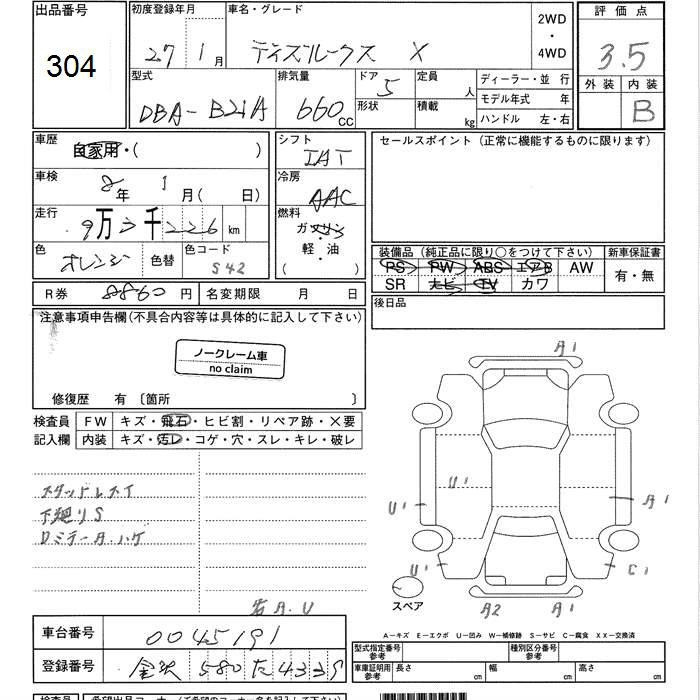 出品番号
304
初度登録年月
27 1月
車名・グレード
デイズルークス X
2WD
・
4WD
評価点
3.5
外装 内装
B
型式
DBA-B21A
排気量
660 CC
ドア
5
形状
定員
人
積載
kg
ディーラー・並 行
モデル年式 年
ハンドル 左・右
車歴
自家用・( )
車検
8年 1月( 日)
走行
9万3千226km
色
オレンジ
色替
色コード
S42
シフト
IAT
冷房
AAC
燃料
ガソリン
軽・油
( )
セールスポイント(正常に機能するものに限ります)
装備品(純正品に限り○をつけて下さい)
PS PW ABS エアB AW
SR ナビ TV カワ
新車保証書
有・無
R券 8860円
名変期限 月 日
後日品
注意事項申告欄(不具合内容等は具体的に記入して下さい)
ノークレーム車
no claim
修復歴 有 〔箇所 〕
検査員
記入欄
FW キズ・飛石・ヒビ割・リペア跡・×要
内装 キズ・汚レ・コゲ・穴・スレ・キレ・破レ
スタッドレスイ
下廻りS
Dミラーキ・ハゲ
岩A.U
A1
U1
U1
A1
U1
C1
スペア
A2
A1
A-キズ E-エクボ U-凹み W-補修跡 S-サビ C-腐食 XX-交換済
車台番号
0045191
登録番号
金沢 580 た 4339
型式指定番号
参考
種別区分番号
参考
車庫証明用
参考
長さ cm
幅 cm
高さ cm